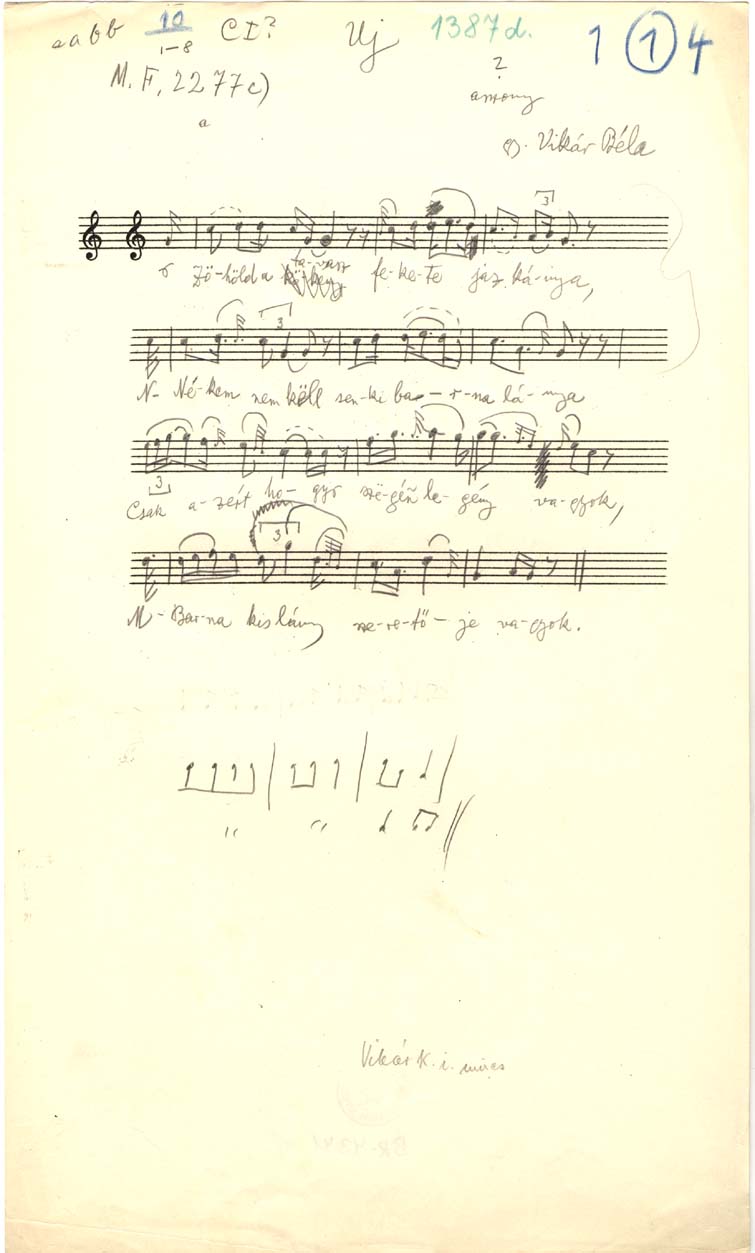 aabb 10 CI? Uj 1387d. 1 1 4
1-8
M. F. 2277c)
a
?
asszony
gy. Vikár Béla
3
r Zö-höld a ta-vasz fe-ke-te jaz ká-nya,
3
N- Né-kem nem këll sen-ki ba-r-na lá-nya
3
Csak a-zért ho-gyr szë-géñ le-gény va-gyok,
3
M-Bar-na kis lány sze-re-tő-je va-gyok.
Vikár K. i. nincs